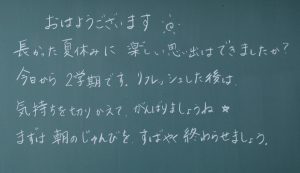 おはようございます
長かった夏休みに 楽しい思い出はできましたか？
今日から 2学期です。リフレッシュした後は、
気持ちを切りかえて、がんばりましょうね ★
まずは 朝のじゅんびを、すばやく 終わらせましょう。